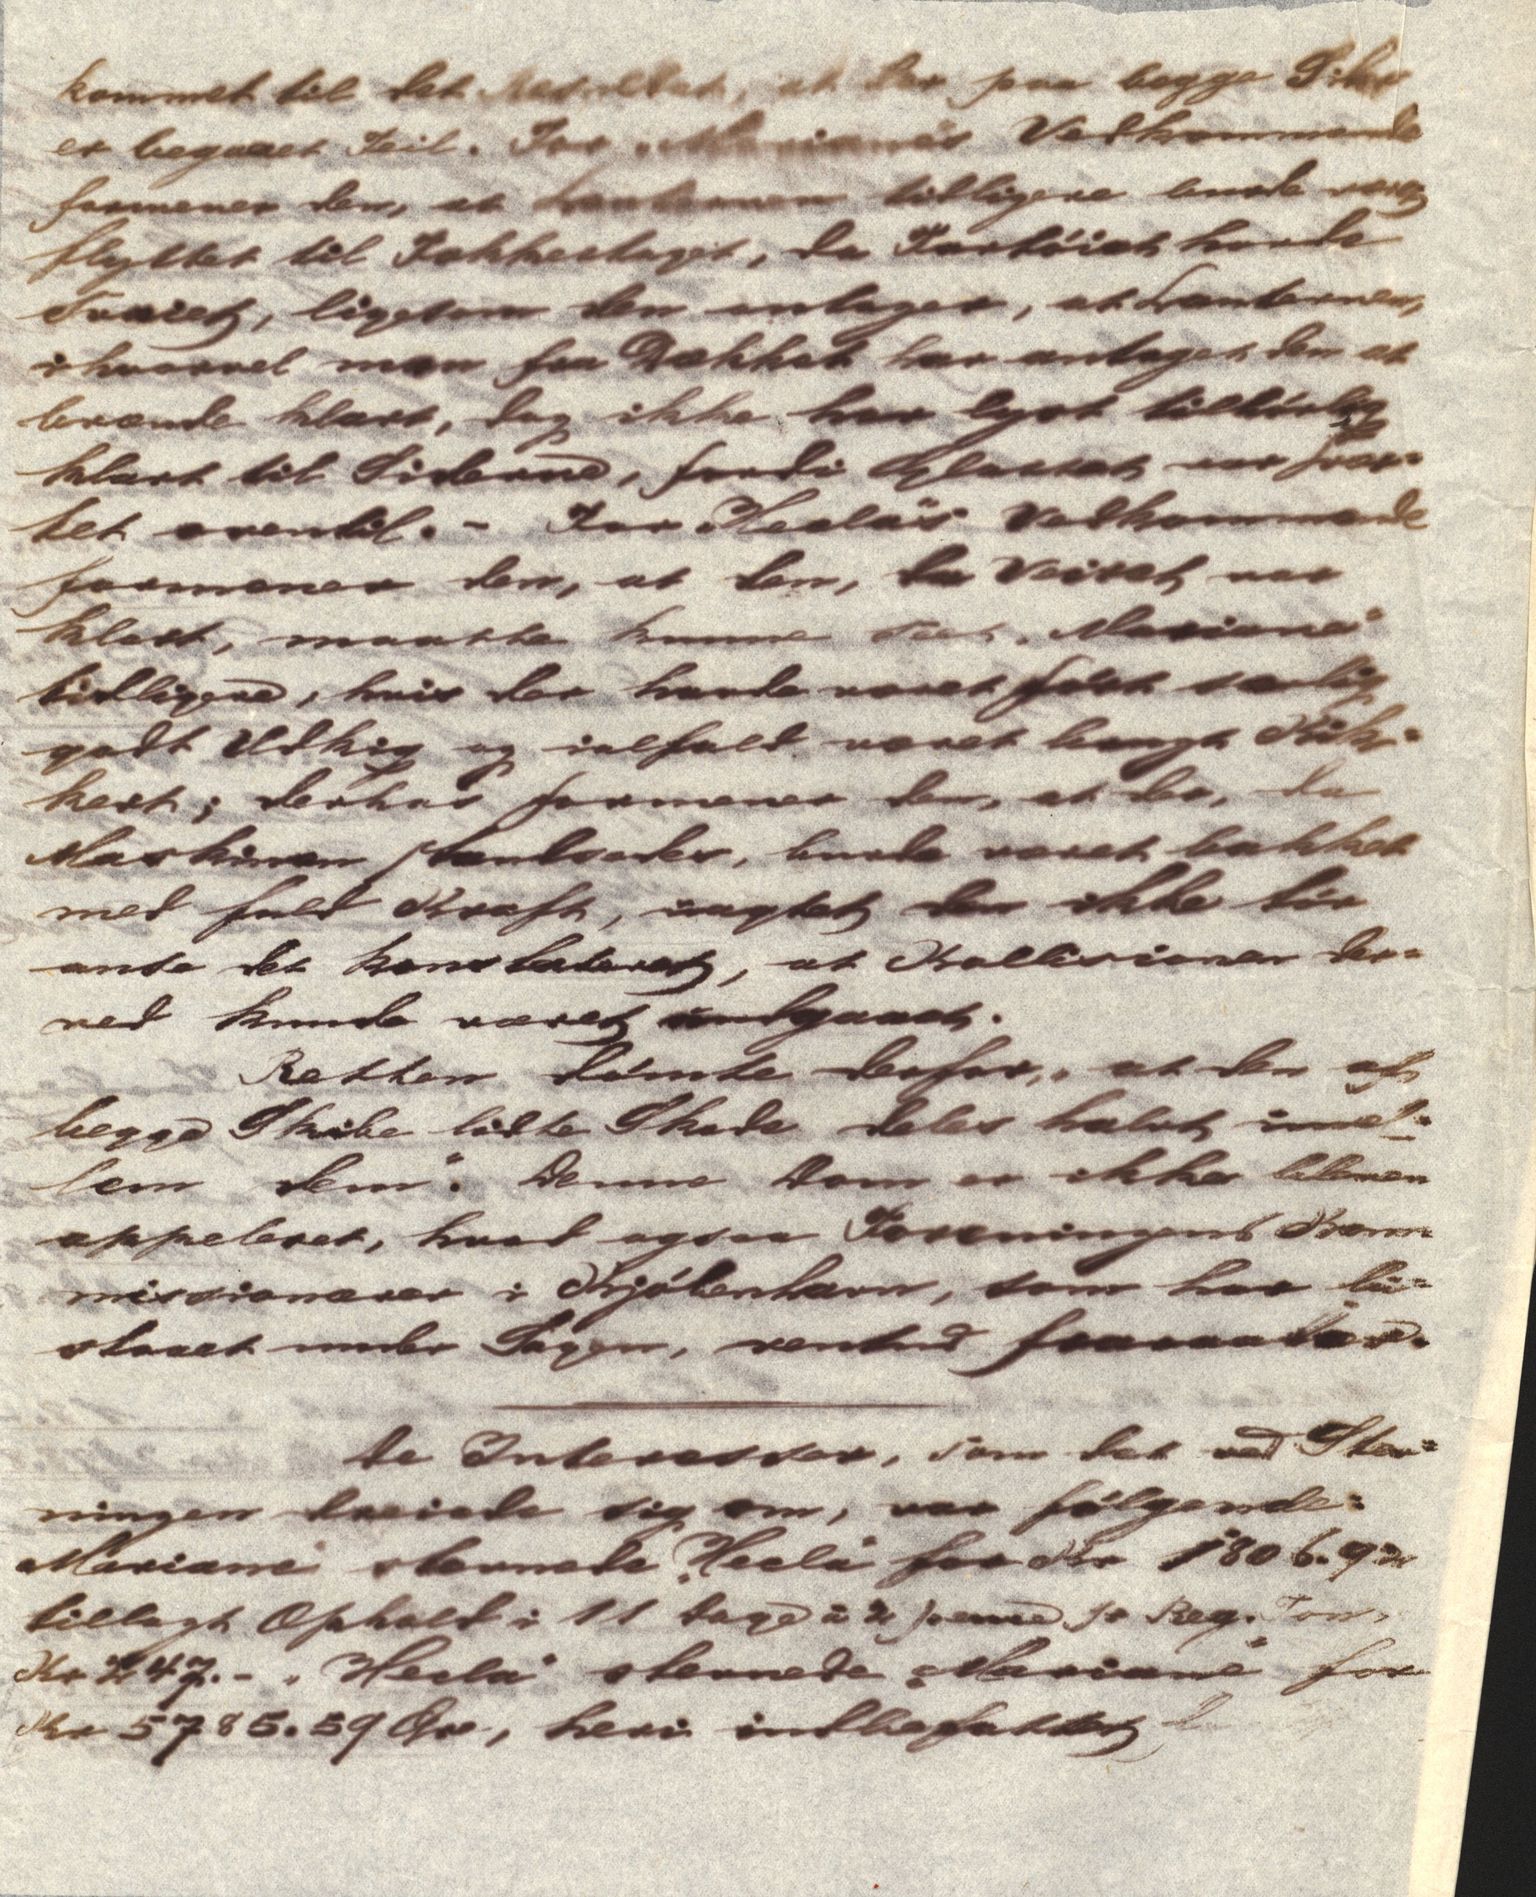 kommet til det Resultat, at der paa begge Sider
er begaaet Feil. For "Mariane's Vedkommende
formener den, at Lanternen tidligere burde være
flyttet til Fokkestaget, da Fartöiet havde
Svaiet, ligesom den antager, at Lanternen,
ihvorvel man fra Dækket har antaget den at
brænde klart, dog ikke har lyst tilstrækkelig
klart til Siderne, fordi Glasset var sver-
tet oventil. - For "Hecla's" Vedkommende
formener den, at den, da Veiret var
klart, maatte kunne seet "Mariane"
tidligere, hvis der havde været fört særlig
godt Udkig og ialfald været brugt Kik-
kert; derhos formener den, at der, da
Maskinen standsedes, burde været bakket
med fuld Kraft, uagtet den ikke tör
anse det konstateret, at Kollisionen der-
ved kunde været undgaaet.
Retten dömte derfor, "at den af
begge Skibe lidte Skade deles halvt imel-
lem dem". Denne Dom er ikke bleven
appelleret, hvad ogsaa Foreningens Kom
missionærer i Kjöbenhavn, som har bi-
staaet under Sagen, ventud fraraadede.
De Interesser, som det ved Stev-
ningen dreiede sig om, var fölgende:
"Mariane" stevnede "Hecla" for Kr 1806.92
tillagt Ophold i 11 dage à 4 pence pr Reg. Ton,
Kr 447.- . "Hecla" stevnede "Mariane" for
Kr 5785.59 Öre, heri indbefattet